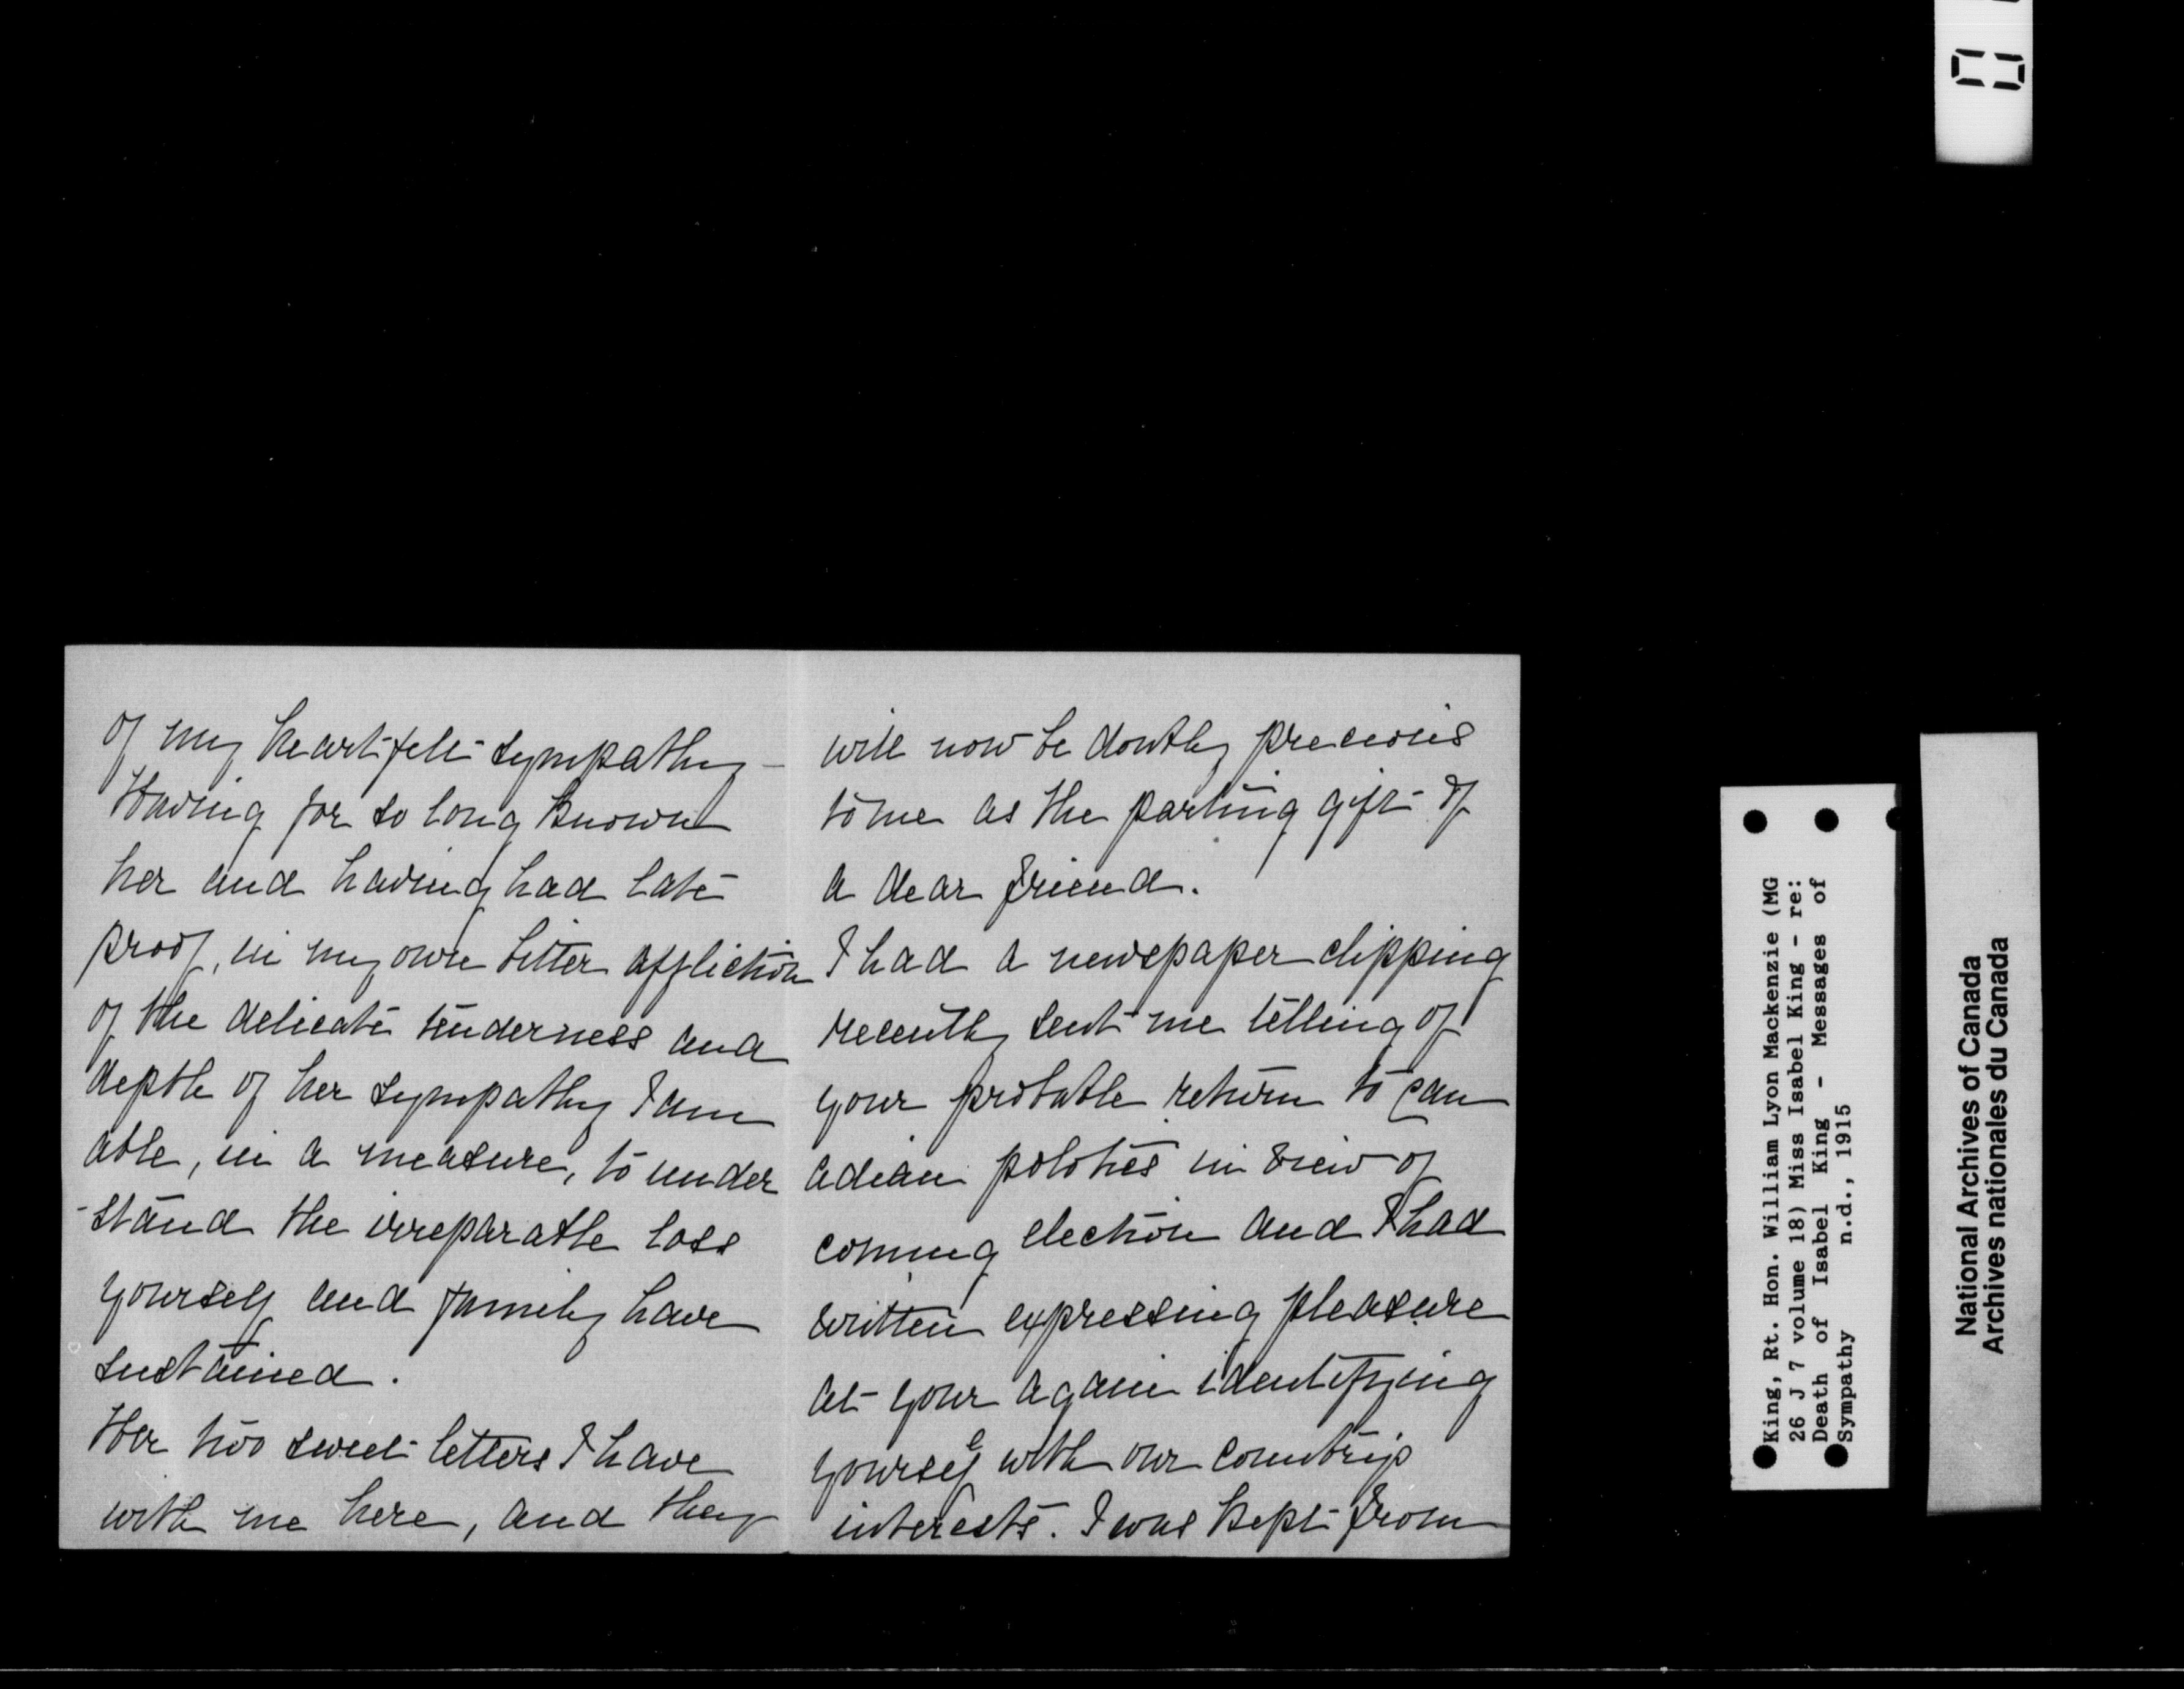 of my heartfelt sympathy -
Having for so long known
her and having had late
proof, in my own bitter affliction
of the delicate tenderness and
depth of her sympathy I am
able, in a measure, to under
-stand the irreparable loss
yourself and family have
sustained.
Her two sweet letters I have
with me here, and they
will now be doubly precious
to me as the parting gift of
a dear friend.
I had a newspaper clipping
recently sent me telling of
your probable return to Can
adian politics in view of
coming election and I had
written expressing pleasure
at your again identifying
yourself with our country's
interests. I was kept from
King, Rt. Hon. William Lyon Mackenzie (MG
26 J 7 volume 18) Miss Isabel King - re:
Death of Isabel King - Messages of
Sympathy n.d., 1915
National Archives of Canada
Archives nationales du Canada